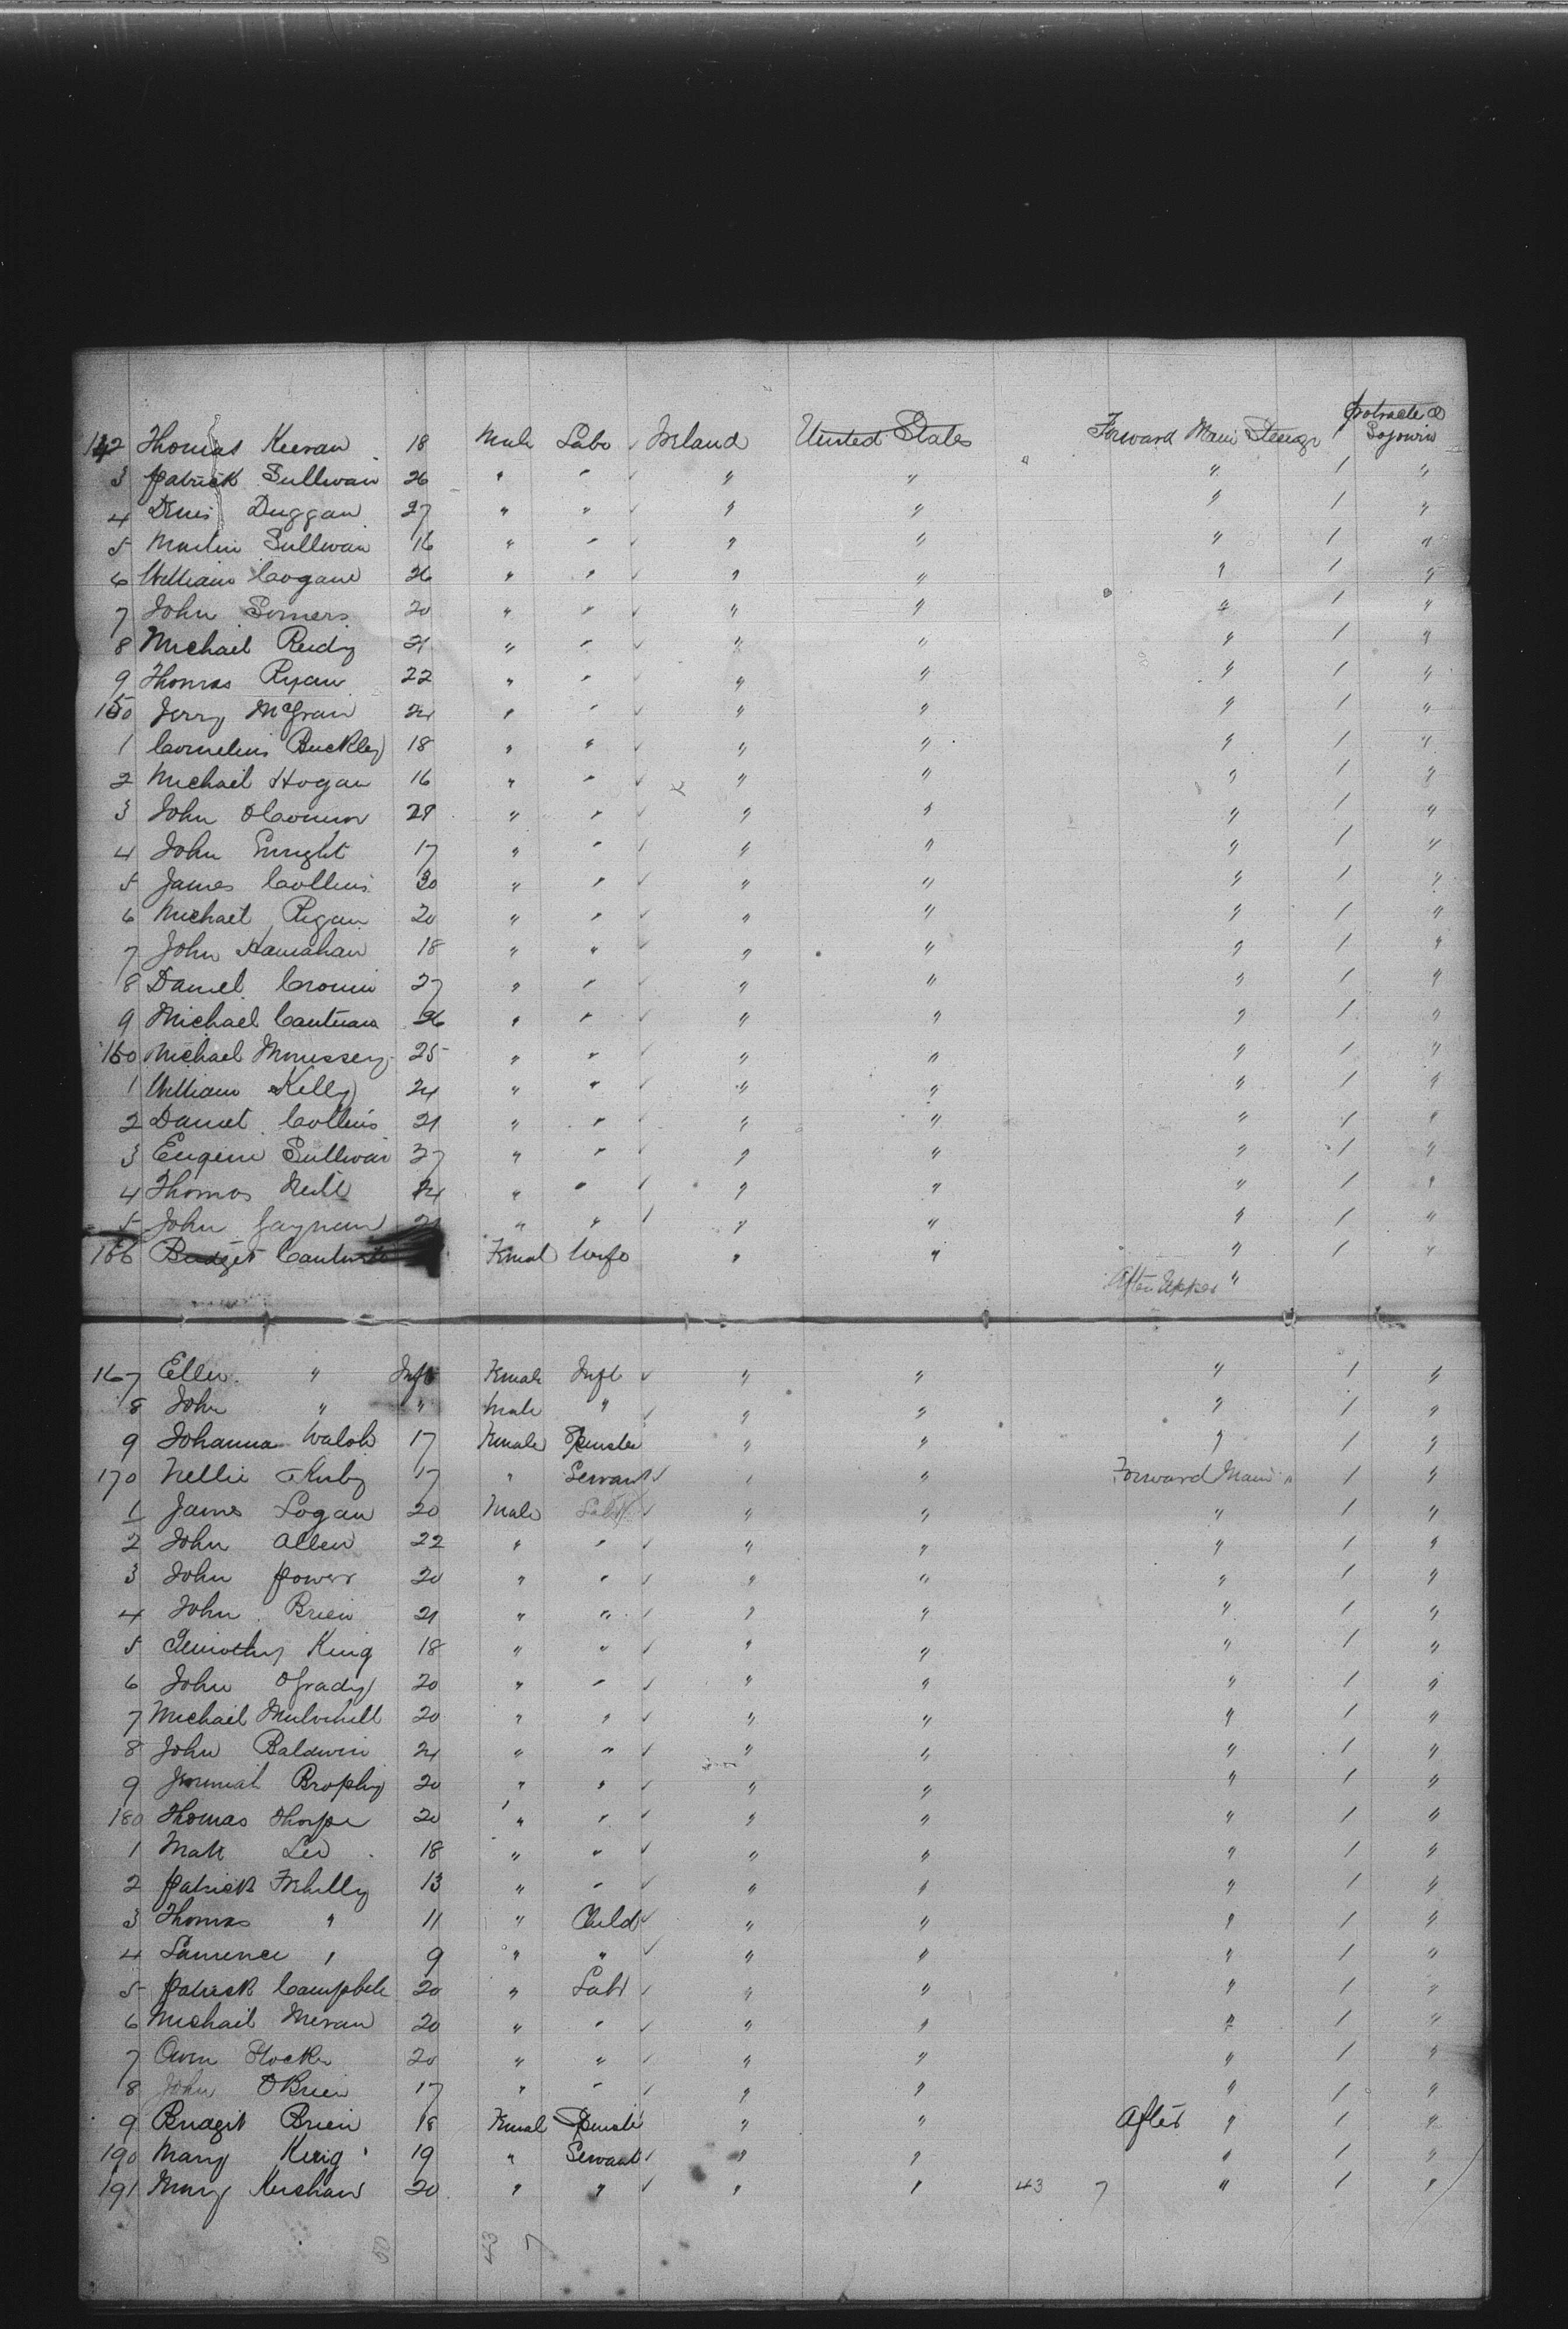 Protracted
142 Thomas Keevan 18 Male Labr Ireland United States Forward Main Steerage 1 Sojourn
3 Patrick Sullivan 26 " " " " " 1 "
4 Denis Duggan 27 " " " " " 1 "
5 Martin Sullivan 16 " " " " " 1 "
6 William Cogan 26 " " " " " 1 "
7 John Somers 20 " " " " " 1 "
8 Michael Reidy 21 " " " " " 1 "
9 Thomas Ryan 22 " " " " " 1 "
150 Jerry " " " " " 1 "
1 Cornelius Buckley 18 " " " " " 1 "
2 Michael Hogan 16 " " " " " 1 "
3 John OConnor " " " " " 1 "
4 John Enright 17 " " " " " 1 "
5 James Collins 30 " " " " " 1 "
6 Michael Regan 20 " " " " " 1 "
7 John Hanrahan 18 " " " " " 1 "
8 Daniel Cronin 27 " " " " " 1 "
9 Michael 26 " " " " " 1 "
160 Michael 25 " " " " " 1 "
1 William Kelly 24 " " " " " 1 "
2 Daniel Collins 21 " " " " " 1 "
3 Eugene Sullivan 27 " " " " " 1 "
4 Thomas Neill " " " " " 1 "
5 John " " " " " 1 "
166 Bridget Femal Wife " " " 1 "
After Upper "
167 Ellen " Inft Female Inft " " " 1 "
8 John " " Male " " " " 1 "
9 Johanna Walsh 17 Female Spinster " " " 1 "
170 Nellie Kirby 17 " Servant " " Forward Main " 1 "
1 James Logan 20 Male Labr " " " 1 "
2 John Allen 22 " " " " " 1 "
3 John Power 20 " " " " " 1 "
4 John Brien 21 " " " " " 1 "
5 Timothy King 18 " " " " " 1 "
6 John OGrady 20 " " " " " 1 "
7 Michael Mulvihill 20 " " " " " 1 "
8 John Baldwin 24 " " " " " 1 "
9 Jeremiah Brophy 20 " " " " " 1 "
180 Thomas Thorpe 20 " " " " " 1 "
1 Matt Lee 18 " " " " " 1 "
2 Patrick 13 " " " " " 1 "
3 Thomas " 11 " Child " " " 1 "
4 Laurence " 9 " " " " " 1 "
5 Patrick Campbell 20 " Labr " " " 1 "
6 Michael 20 " " " " " 1 "
7 Owen 20 " " " " " 1 "
8 John OBrien 17 " " " " " 1 "
9 Bridget Brien 18 Femal Spinster " " After " 1 "
190 Mary King 19 " Servant " " " 1 "
191 Mary Kershaw 20 " " " " 43 7 " 1 "
50 43 7